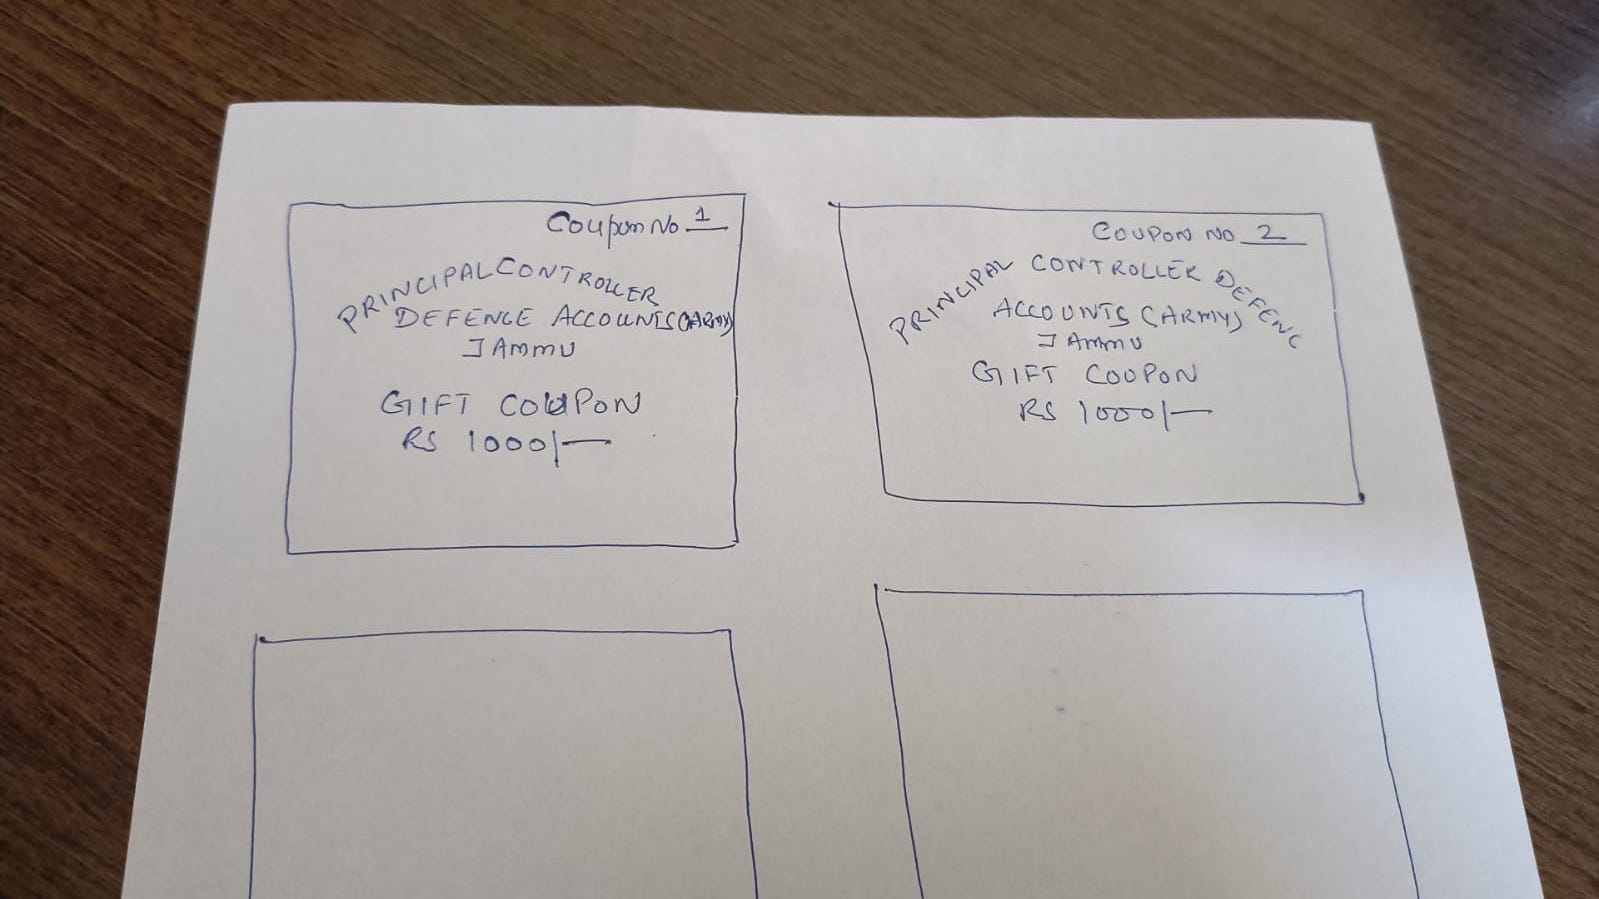 Coupon No. 1
PRINCIPAL CONTROLLER
DEFENCE ACCOUNTS (ARMY)
JAMMU
GIFT COUPON
RS 1000/-
COUPON NO 2
PRINCIPAL CONTROLLER DEFENC
ACCOUNTS (ARMY)
JAMMU
GIFT COUPON
RS 1000/-